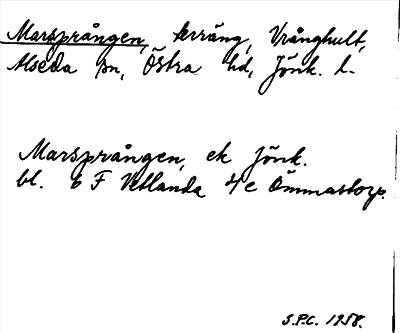 Marsprången, terräng, Vrånghult,
Alseda sn, Östra hd, Jönk. l.
Marsprången, ek Jönk.
bl. 6 F Vetlanda 4e Ömmastorp.
S.P.C. 1958.